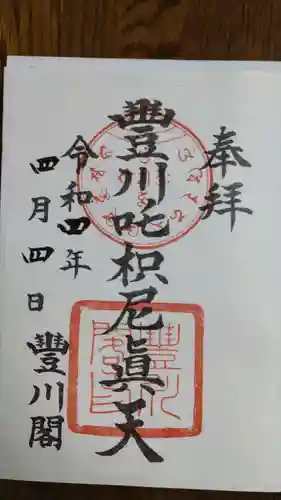 奉拝
豐川吒枳尼眞天
令和四年
四月四日 豐川閣